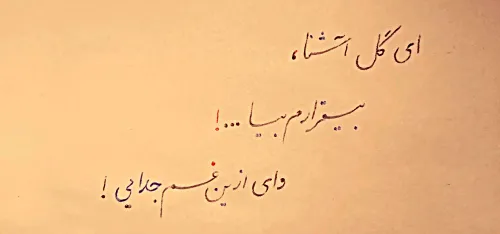 ای گل آشنا،
بیقرارم بیا...!
وای ازین غم جدایی!